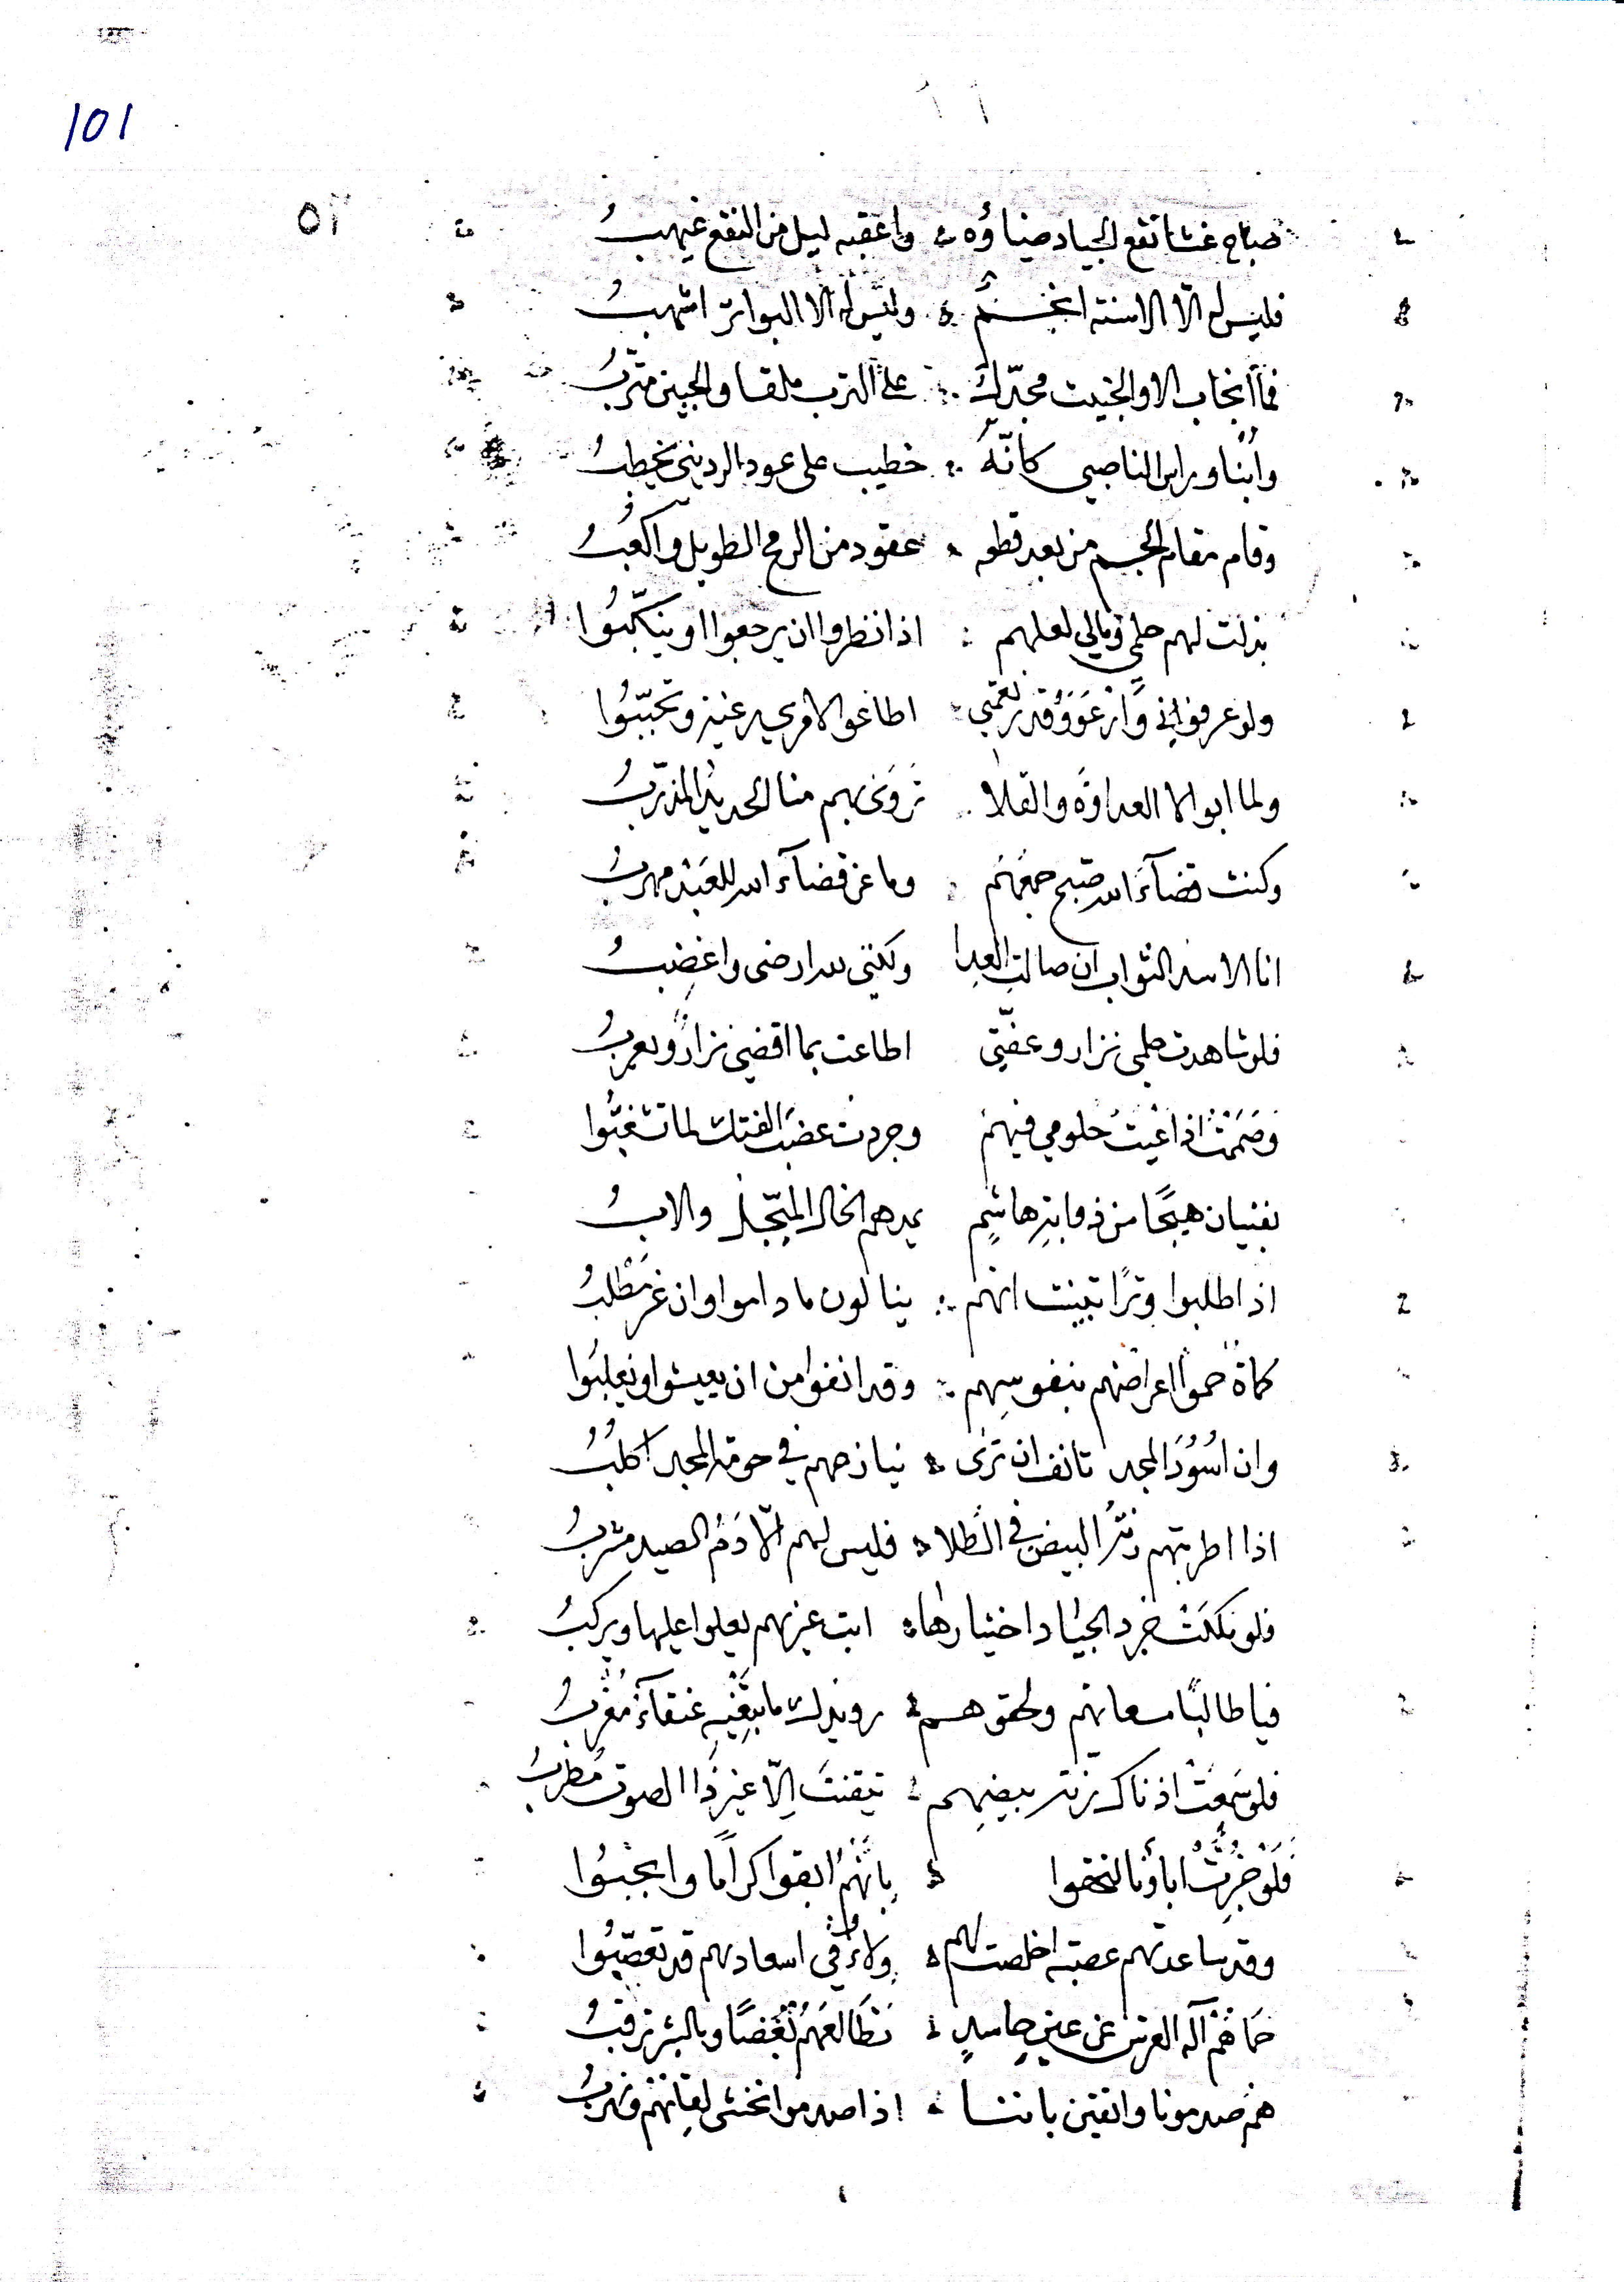 101
٥٢
صباح غشا نقع الجياد ضياؤه واعقبه ليل من النقع غيهبُ
فليس له الّا الاسنة انجمٌ وليس له الا البواتر اشهبُ
فما انجاب الا والخيت مجدّل على الترب ملقا والجبين مترّبُ
وأبنا وراس الناصبي كانّهُ خطيب على عود الرديني يخطبُ
وقام مقام الجسم من بعد قطعه عقود من الرمح الطويل واكعُبُ
بذلت لهم حلمي ومالي لعلهم اذا نظروا ان يرجعوا او ينكّبُوا
ولو عرفوا اني وارعووا قدر نعمتي اطاعوا لامري رغبة وتحببّوا
ولما ابوا الا العداوةَ والقلا تروّى بهم منا الحديدُ المذرّبُ
وكنت قضآءَ الله صبح جمعهَم وما عن قضآءِ الله للعبْد مهربُ
انا الاسد الوثاب ان صالتِ العِدا ولكنني لله ارضى واغضِبُ
فلو شاهدت حلمي نزار وعفّتي اطاعت بما اقضي نزارٌ ويعربُ
وصَمَّمْتُ اذ اعْيتْ حلومي فيهمُ وجردت عضبَ الفتك لما تشغبّوا
بفتيان هيجًا من ذوابةِ هاشِمٍ يمدهم الخال المبجّل والابُ
اذا طلبوا وترًا تبينت انهم ينالون ما داموا وان عز مَطْلبُ
كماة حموا اعراضهم بنفوسِهم وقد انفوا من ان يعيشوا ويغلبُوا
وان اسُوُدَ المجد تانف ان ترَى ينازعهم في حومة المجد اكلبُ
اذا اطربتهم رنّةُ البيض في الطلا فليس لهم الّا دَمُ الصيد مشربُ
فلو ملكَتْ جرد الجيَاد اختيارها ابت غيرهم يعلوا عليها ويركبُ
فيا طالبًا مسعاتهم ولحوقهم رويدك ما تبغيهِ عنقآءُ مُغْربُ
فلو سَمِعَتْ اذناك رنة بيضِهم تيقنتَ الّا غير ذا الصوت مُطربُ
فَلَوْ خُبِّرَتْ اباؤنا لتحققوا بِانَّهُمُ ابقوا كرامًا وانجبُوا
وقد ساعدتهم عصبة اخلصت لهم ولاءً وفي اسعادهم قد تعصّبُوا
حماهُمْ آله العرش عن عينِ حاسدٍ تطَالعَهُمْ بُغْضًا وبالشر ترقبُ
همُ صدمونا واثقين باننا اذا صدموا نخشى لقائهم ونهربُ